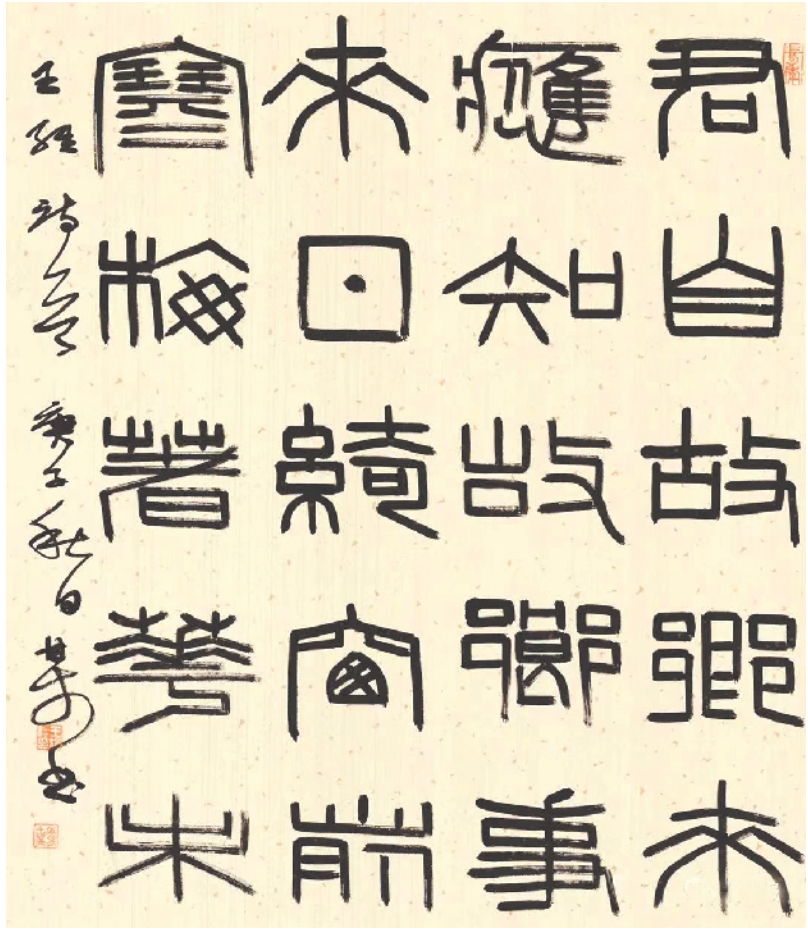 君自故鄉來
應知故鄉事
來日綺窗前
寒梅著華未
王維詩一首
秋日
书